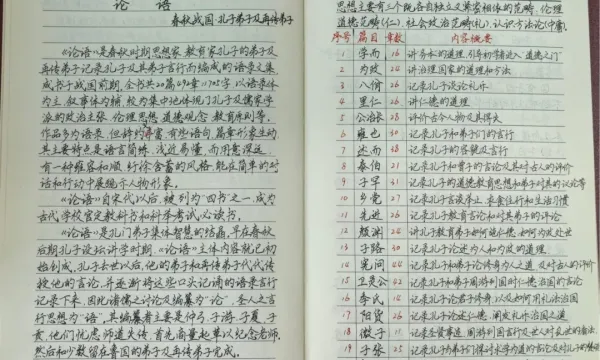 论语
春秋战国·孔子弟子及再传弟子
《论语》是春秋时期思想家、教育家孔子的弟子及
再传弟子记录孔子及其弟子言行而编成的语录文集,
成书于战国前期。全书共20篇492章11705字,以语录体
为主,叙事体为辅,较为集中地体现了孔子及儒家学
派的政治主张、伦理思想、道德观念、教育原则等。
作品多为语录,但辞约义富,有些语句、篇章形象生动
其主要特点是语言简练,浅近易懂,而用意深远,
有一种雍容和顺、纡徐含蓄的风格,能在简单的对
话和行动中展示人物形象。
《论语》自宋代以后,被列为“四书”之一,成为
古代学校官定教科书和科举考试必读书。
《论语》是孔门弟子集体智慧的结晶,早在春秋
后期孔子设坛讲学时期,《论语》主体内容就已初
始创成,孔子去世以后,他的弟子和再传弟子代代传
授他的言论,并逐渐将这些口头记诵的语录言行
记录下来,因此集腋之讨论及编纂为“论”,圣人之言
行思想为“语”,其编纂者主要是仲弓、子游、子夏、子
贡,他们忧虑师道失传,首先商量起草以纪念老师,
然后和少数留在鲁国的弟子及再传弟子完成。
思想主要有三个既各自独立又紧密相依的范畴:伦理
道德范畴(仁),社会政治范畴(礼),认识方法论(中庸)
序号 篇目 章数 内容概要
1 学而 16 讲务本的道理,引导初学者进入“道德之门”
2 为政 24 讲治理国家的道理和方法
3 八佾 26 记录孔子谈论礼乐
4 里仁 26 讲仁德的道理
5 公冶长 28 评价古今人物及其得失
6 雍也 30 记录孔子和弟子们的言行
7 述而 38 记录孔子的容貌及言行
8 泰伯 21 记录孔子和曾子的言论及其对古人的评价
9 子罕 31 记录孔子的道德教育思想和弟子对其的议论等
10 乡党 27 记录孔子言谈举止、衣食住行和生活习惯
11 先进 26 记录孔子教育言论和对其弟子的评论
12 颜渊 24 讲孔子教育弟子如何行仁德,如何为政处世
13 子路 30 记录孔子论述为人和为政的道理
14 宪问 44 记录孔子和弟子论修身为人之道,及对古人的评价
15 卫灵公 42 记录孔子和弟子周游列国时仁德治国的言论
16 季氏 14 记录孔子论君子修身,以及如何用礼法治国
17 阳货 26 记录孔子论述仁德,阐发礼乐治国之道
18 微子 11 记录圣贤事迹,周游列国言行及世人对乱世的看法。
19 子张 25 记录孔子和弟子们探讨求学为道的言论及对孔子的